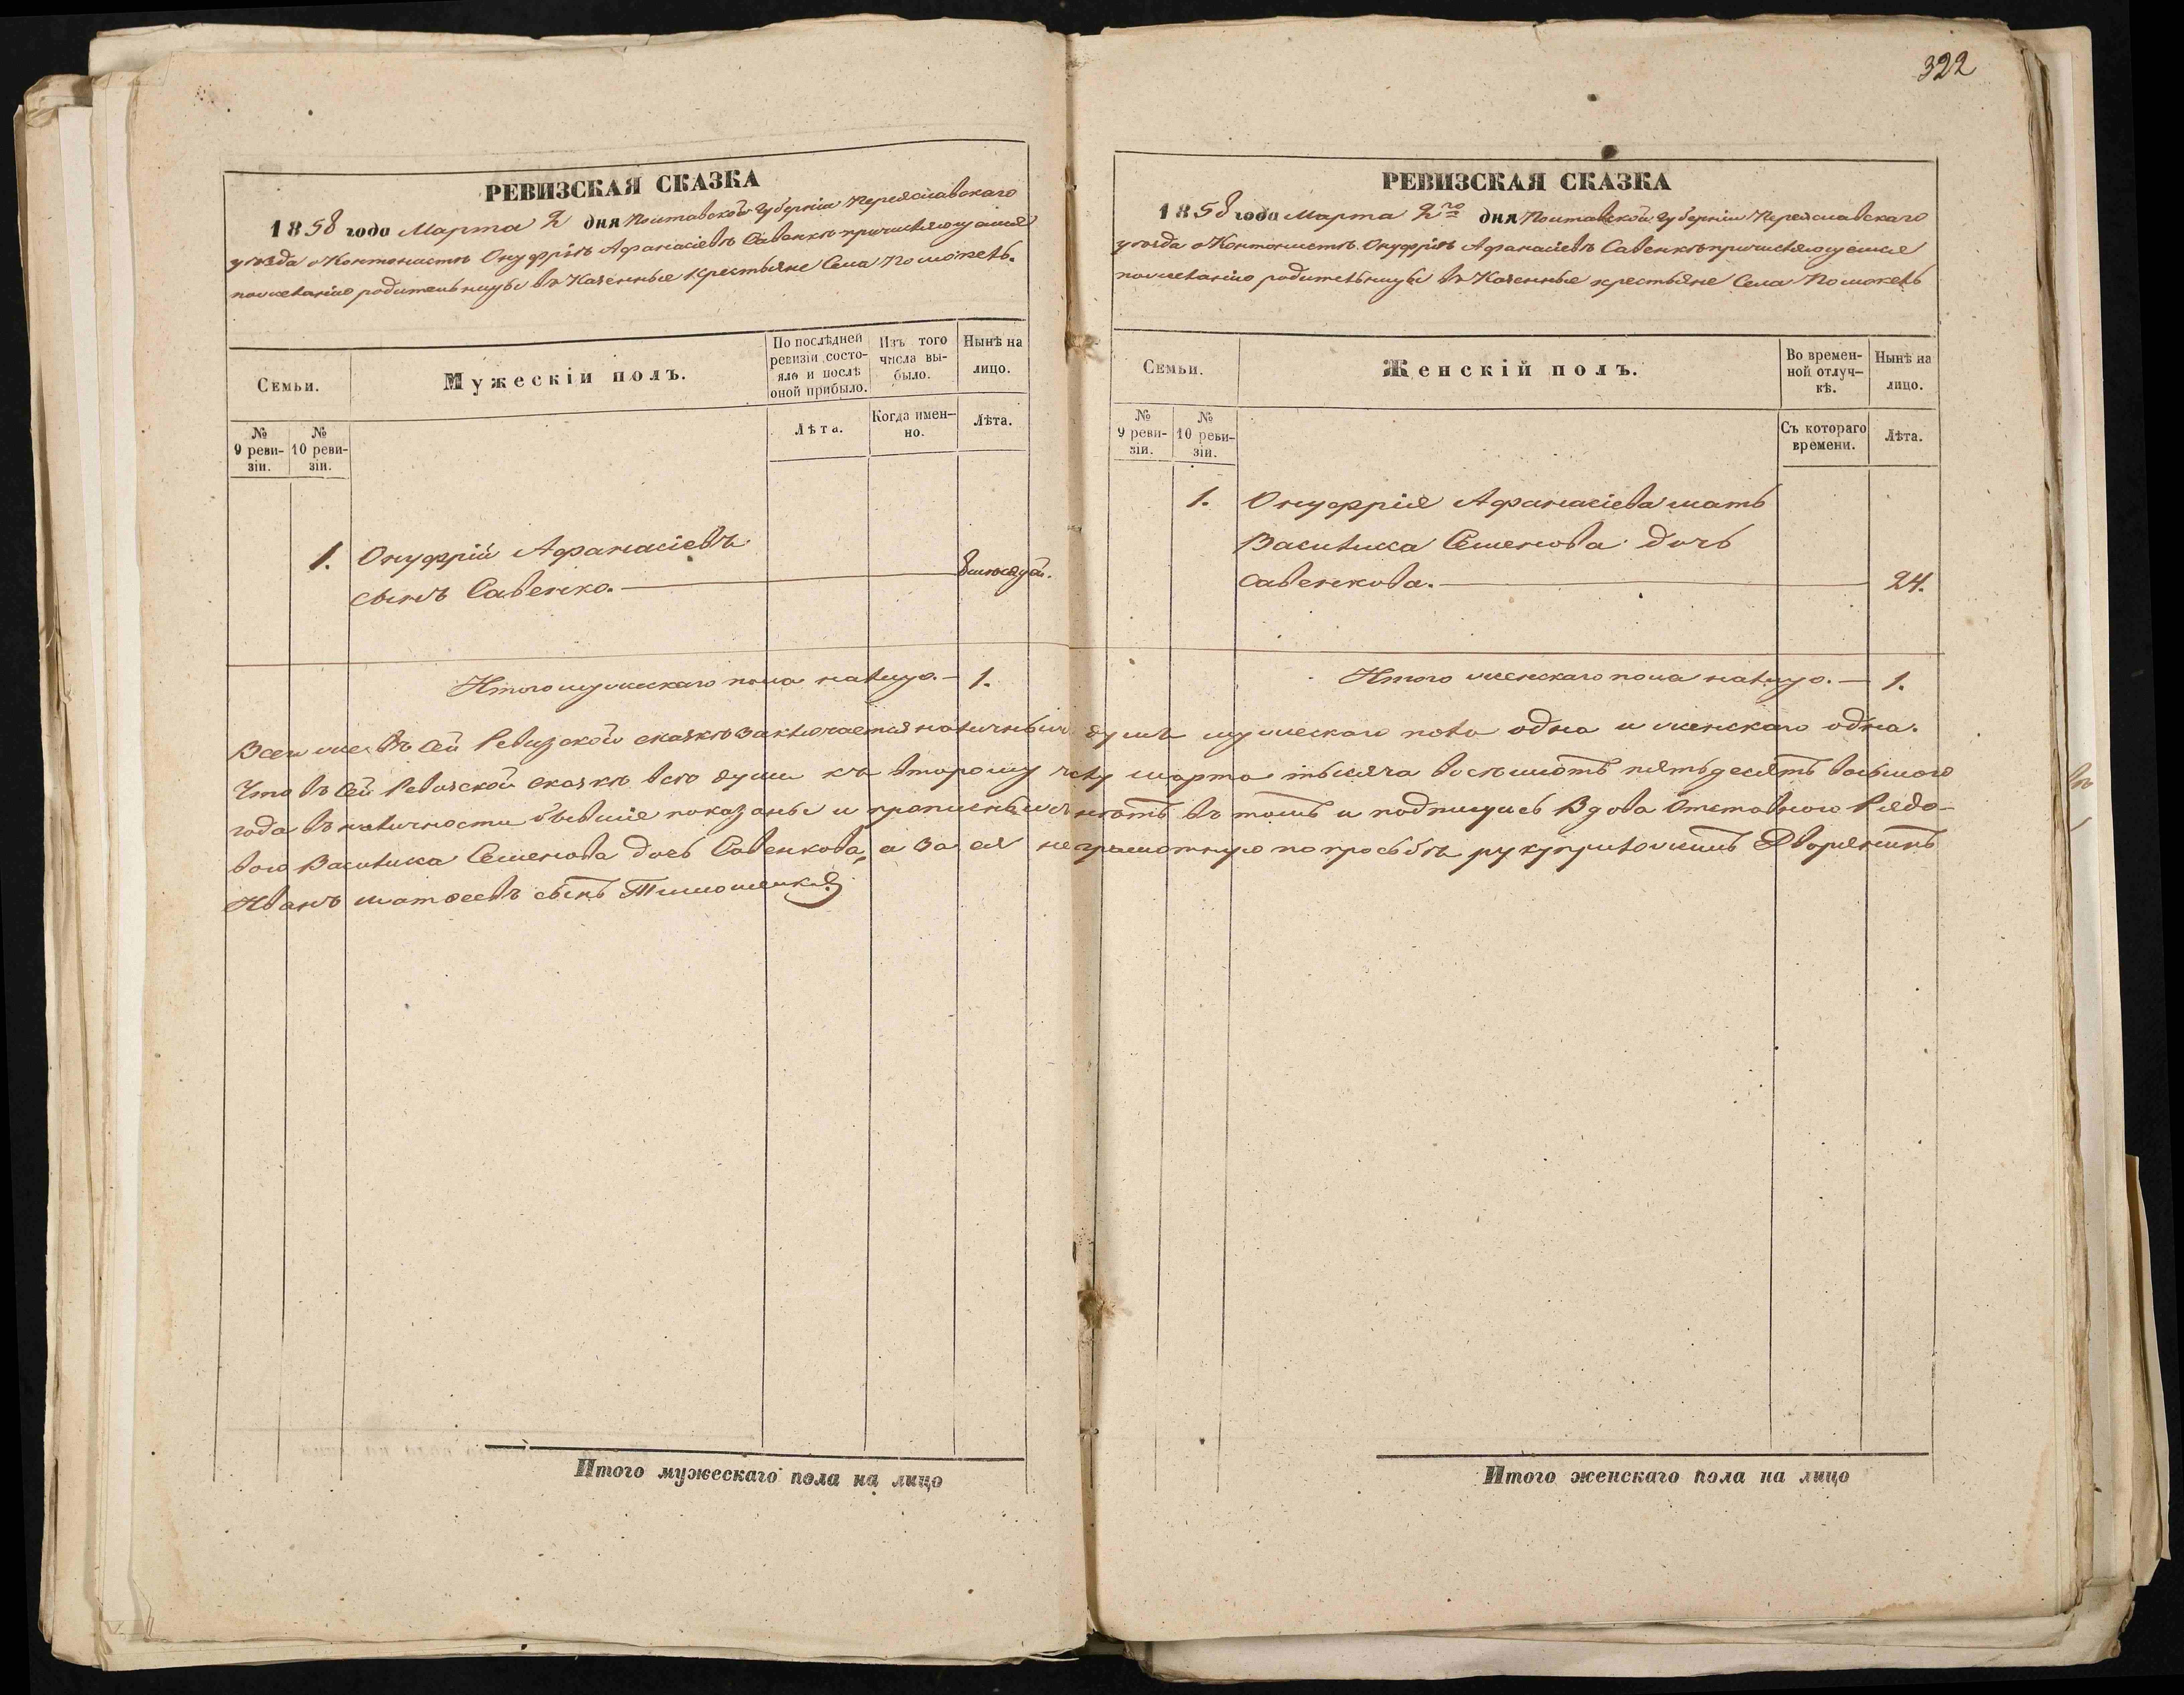 322
РЕВИЗСКАЯ СКАЗКА
1858 года Марта 2 дня Полтавской Губерніи Переяславскаго
уѣзда о Контонистѣ Онуфріѣ Афанасіевѣ Савенкѣ причисляющемся
по желанію родительницы въ Казенные крестьяне Села Помоклѣ.
Семьи.
Мужескій полъ.
По послѣдней ревизіи состояло и послѣ оной прибыло.
Изъ того числа выбыло.
Нынѣ на лицо.
№ 9 ревизіи.
№ 10 ревизіи.
Лѣта.
Когда именно.
Лѣта.
1. Онуфрій Афанасіевъ
сынъ Савенко. —
Итого мужскаго пола налицо. — 1.
РЕВИЗСКАЯ СКАЗКА
1858 года Марта 2го дня Полтавской Губерніи Переяславскаго
уѣзда о Контонистѣ Онуфріѣ Афанасіевѣ Савенкѣ причисляющемся
по желанію родительницы въ Казенные крестьяне Села Помоклѣ
Семьи.
Женскій полъ.
Во временной отлучкѣ.
Нынѣ на лицо.
№ 9 ревизіи.
№ 10 ревизіи.
Съ котораго времени.
Лѣта.
1. Онуфрія Афанасіева мать
Василиса Семенова дочь
Савенкова. — 24.
Итого женскаго пола налицо. — 1.
Всего же въ сей Ревизской сказкѣ заключается наличныхъ душъ мужескаго пола одна и женскаго одна.
Что въ сей Ревизской сказкѣ всѣ души къ второму числу марта тысяча восемьсотъ пятьдесятъ восьмого
года въ наличности бывшіе показаны и прописныхъ нѣтъ въ томъ и подпишусь Вдова Отставного Рядо-
вого Василиса Семенова дочь Савенкова, а за ея неграмотную по просьбѣ руку приложилъ Дворянинъ
Иванъ Матвеевъ сынъ Тимошевскій
Итого мужескаго пола на лицо
Итого женскаго пола на лицо